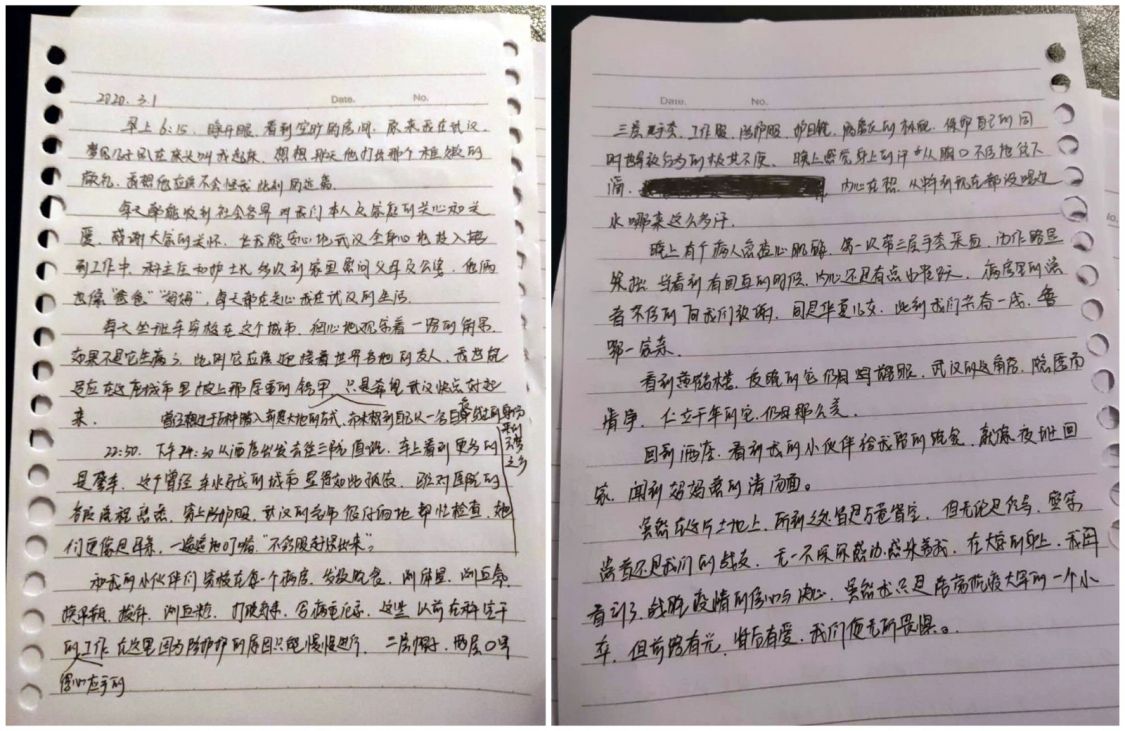 2020.3.1
Date.
No.
早上6:15，睁开眼，看到空旷的房间，原来我在武汉，
儿子风在床头叫我起床，想想那天他打出那个稚嫩的
敬礼，我想他应该不会怪我此刻的远离。
每天都能收到社会各界对我们本人及家庭的关心和关
爱，感谢大家的关怀，让我能安心地武汉全身心地投入援
到工作中，科主任和护士长多次到家里慰问父母及公婆，他俩
也像"爸爸""妈妈"，每天都在关心我在武汉的生活。
每天坐班车穿梭在这个城市，细心地观察着一路的街景，
如果不是它生病了，此时它应该迎接着世界各地的友人，我当然
是应在这座城市里 披上那厚重的铠甲，只是希望武汉快点好起
来。
曾幻想过千万种踏入这片大地的方式，却未想到自己以一名
身份
来到
之乡
22:30，下午24:30从酒店出发去往三院值班，车上看到更多的
是警车，这个曾经车水马龙的城市显得如此孤寂，到对医院的
各段流程熟悉，穿上防护服，武汉的老师仔仔细细地帮忙检查，她
们更像是母亲，一遍遍地叮嘱："不舒服赶快出来"。
和我的小伙伴们穿梭在每一个病房，发放晚餐，测体温，测血氧
换尿瓶，拔针，测血糖，打胰岛素，写病重记录，这些以前在科室干
得心应手的
的工作 在这里因为防护的原因只能慢慢进行，二层帽子，两层口罩
Date.
No.
三层手套，工作服，防护服，护目镜，隔离衣的林璐，保护自己的同
时也带给行为的极其不便。晚上感觉身上的汗水从胸口不停地往下
滴，内心在想，从将到现在都没喝过
水哪来这么多汗。
晚上有个病人急查心肌酶，第一次带三层手套采血，动作略显
笨拙，当看到有回血的时候，内心还是有点小雀跃，病房里的患
者不停的向我们致谢，同是华夏儿女，此刻我们共着一战，鲁
鄂一家亲。
看到黄鹤楼，夜晚的它仍旧，武汉的，隐匿而
肯穿，伫立千年的它，仍旧那么美。
回到酒店，看到我的小伙伴给我留的晚餐，就像夜班回
家，闻到妈妈煮的清汤面。
虽然在这片土地上，所到之处皆是万巷皆空，但无论是队员，医务
患者还是我们的战友，无一不深深感动感染着我，在大家的身上，我再
看到了战胜疫情的信心与决心，虽然我只是浩荡抗疫大军的一个小
卒，但前路有光，背后有爱，我们便无所畏惧。